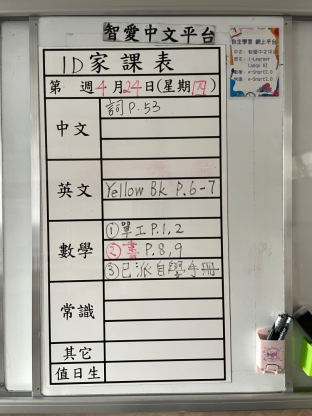 智愛中文平台
1D家課表
第 週4月24日(星期四)
中文
詞P.53
英文
Yellow Bk P.6-7
數學
①單工P.1,2
②書P.8,9
③已派自學手冊
常識
其它
值日生
自主學習 網上平台
中文: 智愛中文平台